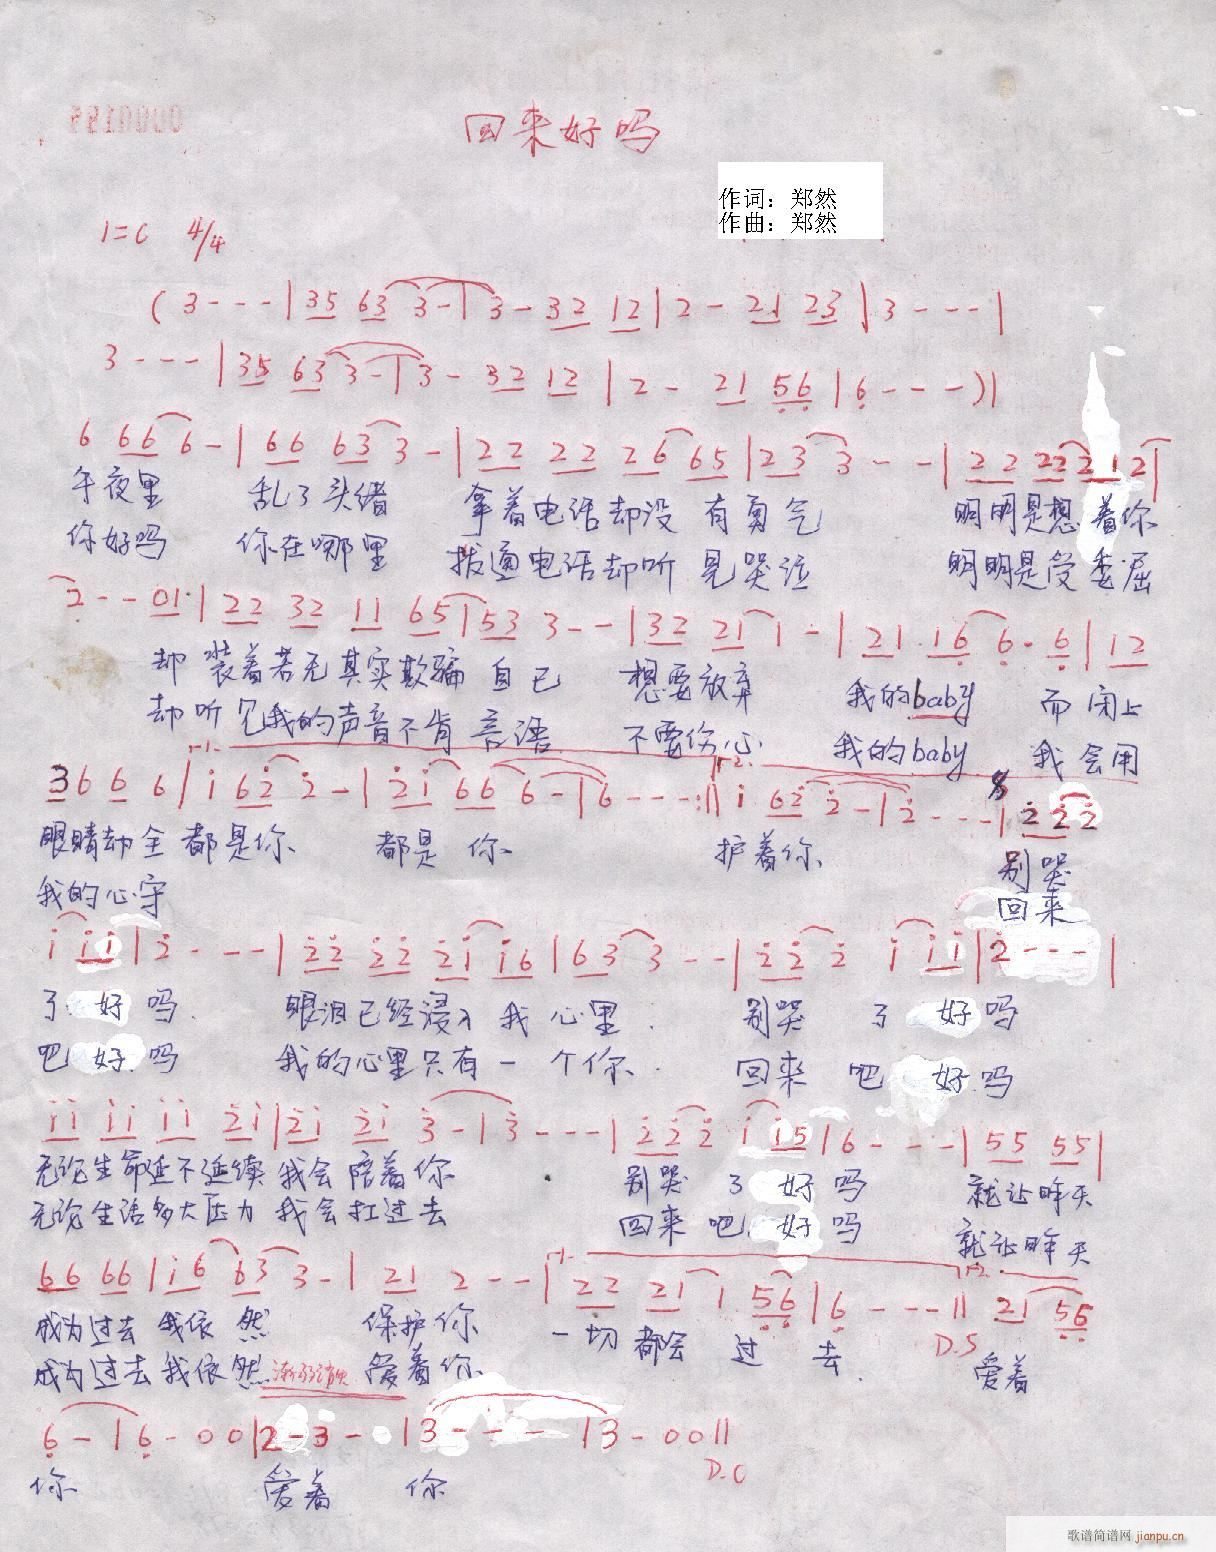 回来好吗
作词：郑然
作曲：郑然
1=C 4/4
( 3 - - - | 35 63 3 - | 3 - 32 12 | 2 - 21 23 | 3 - - - |
3 - - - | 35 63 3 - | 3 - 32 12 | 2 - 21 56 | 6 - - - ) |
6 66 6 - | 66 63 3 - | 22 22 26 65 | 23 3 - - | 22 22 21 2 |
午夜里 乱了头绪 拿着电话却没有勇气 明明是想着你
你好吗 你在哪里 拨通电话却听见哭泣 明明是受委屈
2 - - 01 | 22 32 11 65 | 53 3 - - | 32 21 1 - | 21 16 6· 6 | 12
却装着若无其实欺骗自己 想要放弃 我的baby 而闭上
却听见我的声音不肯言语 不要伤心 我的baby 我会用
36 6 6 | i 62 2 - | 2i 66 6 - | 6 - - - :|| i 62 2 - | 2 - - - | 2 2 2
眼睛却全都是你 都是你 护着你 别哭
我的心守 回来
i i i | 2 - - - | 22 22 2i i6 | 63 3 - - | 22 2 i i i | 2 - - - |
了好吗 眼泪已经浸入我心里 别哭了好吗
吧好吗 我的心里只有一个你 回来吧好吗
ii ii ii 2i | 2i 2i 3 - | 3 - - - | 22 2 i i5 | 6 - - - | 55 55 |
无论生命延不延续我会陪着你 别哭了好吗 就让昨天
无论生活多大压力我会扛过去 回来吧好吗 就让昨天
66 66 | i6 63 3 - | 21 2 - - | 22 21 1 56 | 6 - - - || 21 56
成为过去我依然 保护你 一切都会过去 D.S 爱着
成为过去我依然 爱着你
6 - | 6 - 0 0 | 2 - 3 - · | 3 - - - | 3 - 0 0 ||
D.C
你 爱着 你
歌谱简谱网 jianpu.cn